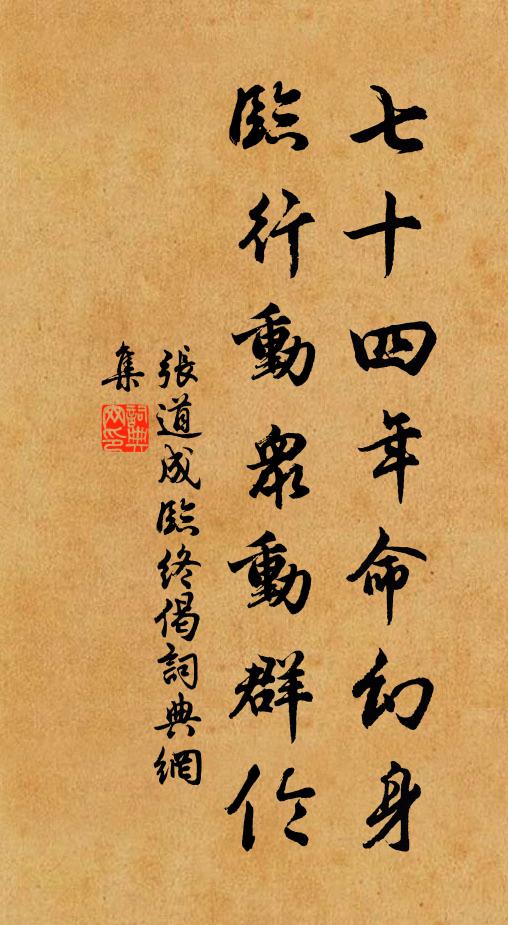 七十四年命幻身
臨行動眾動群伶
張道成臨終偈詞典網
集
詞典
網印